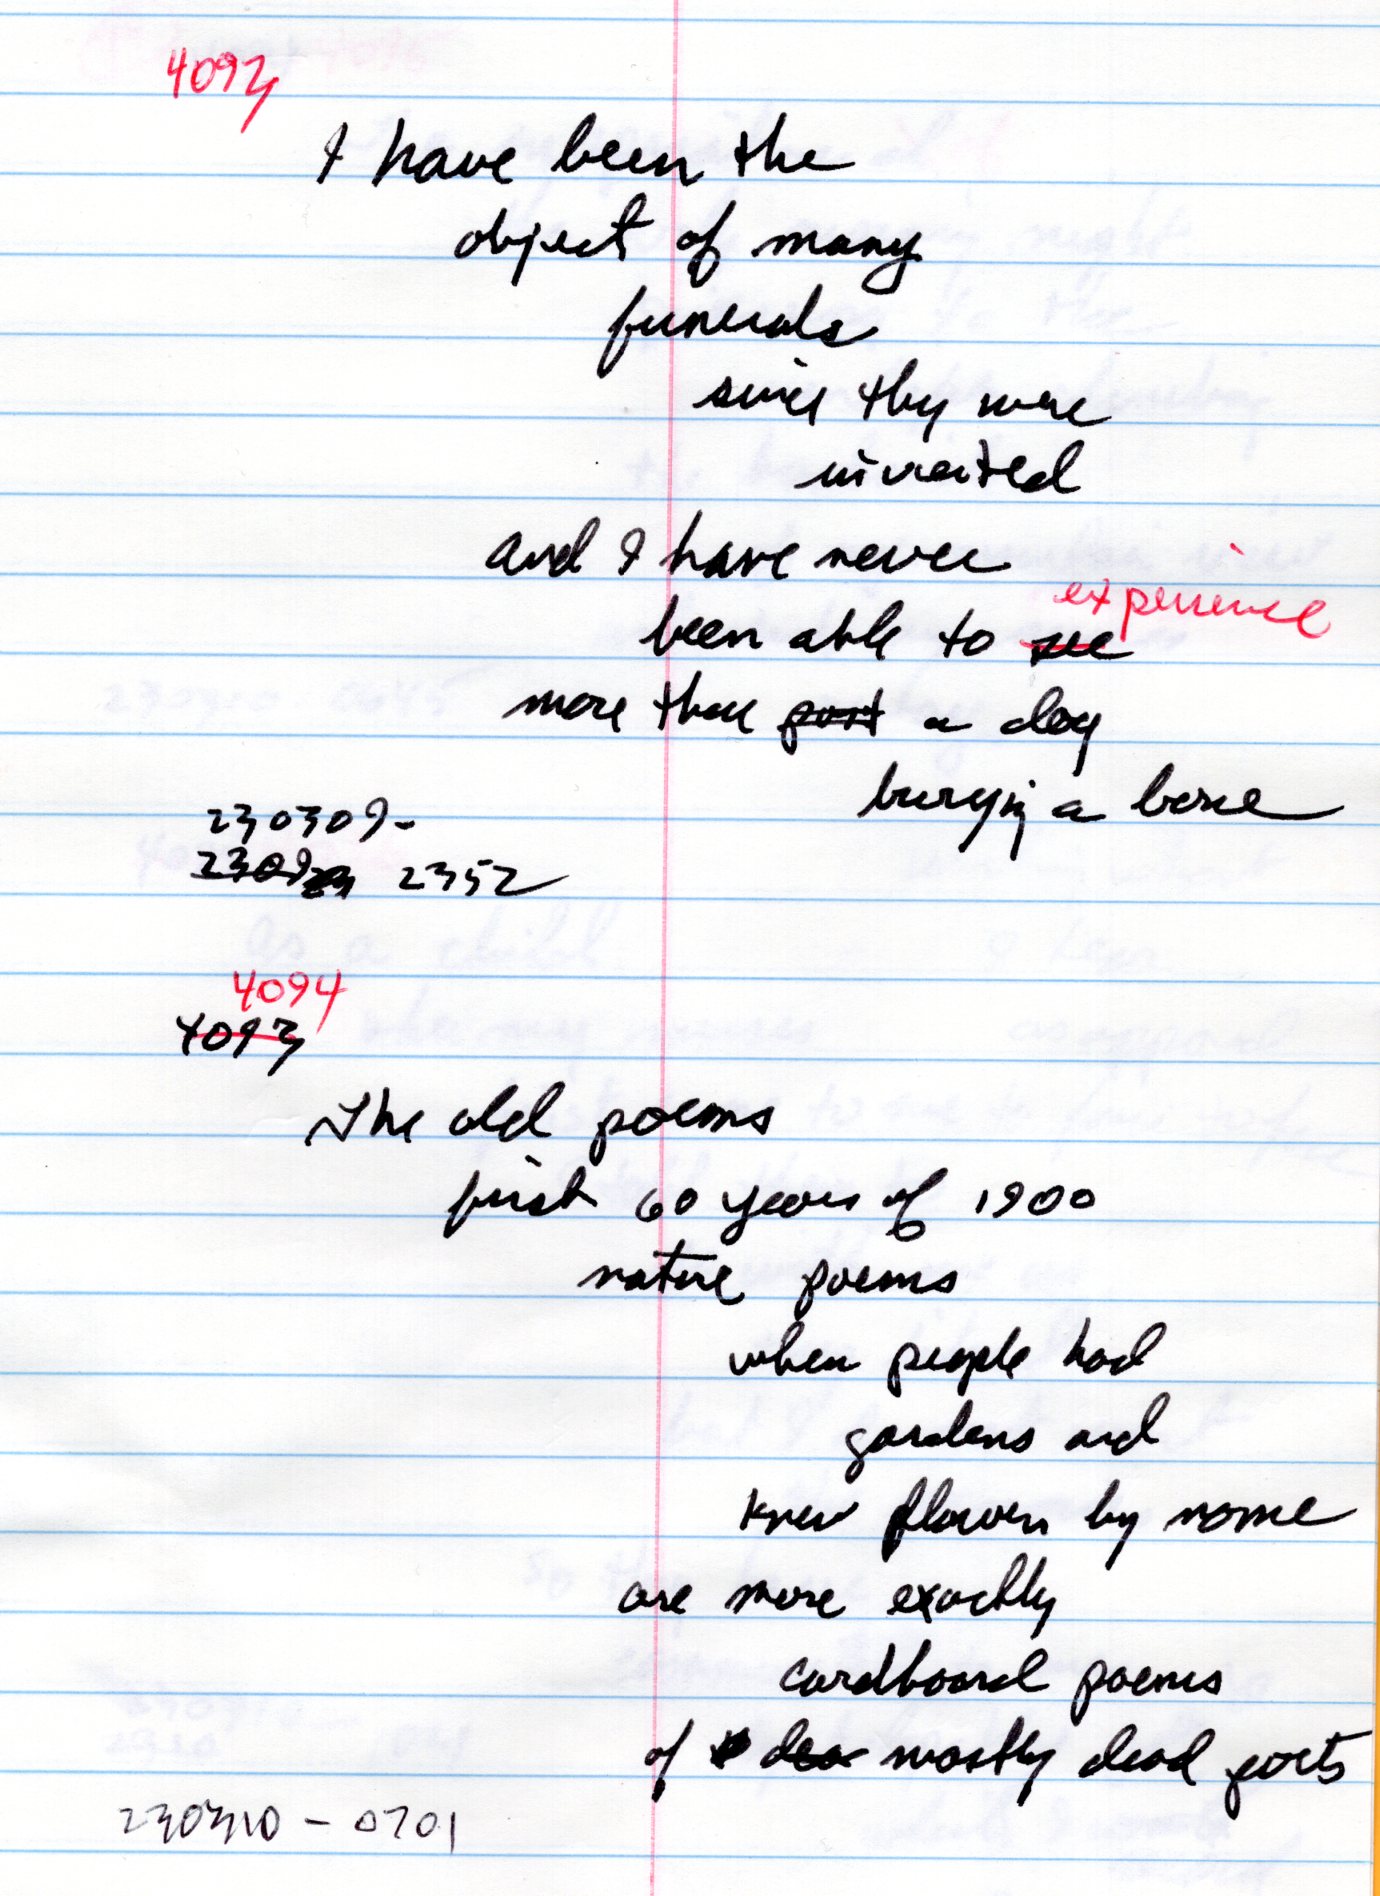 4093
I have been the
object of many
funerals
since they were
invented
and I have never
experience
been able to see
more than post a dog
burying a bone
230309-
2309 2352
4094
4093
The old poems
first 60 years of 1900
nature poems
when people had
gardens and
knew flowers by name
are more exactly
cardboard poems
of dea mostly dead poets
230310 - 0701